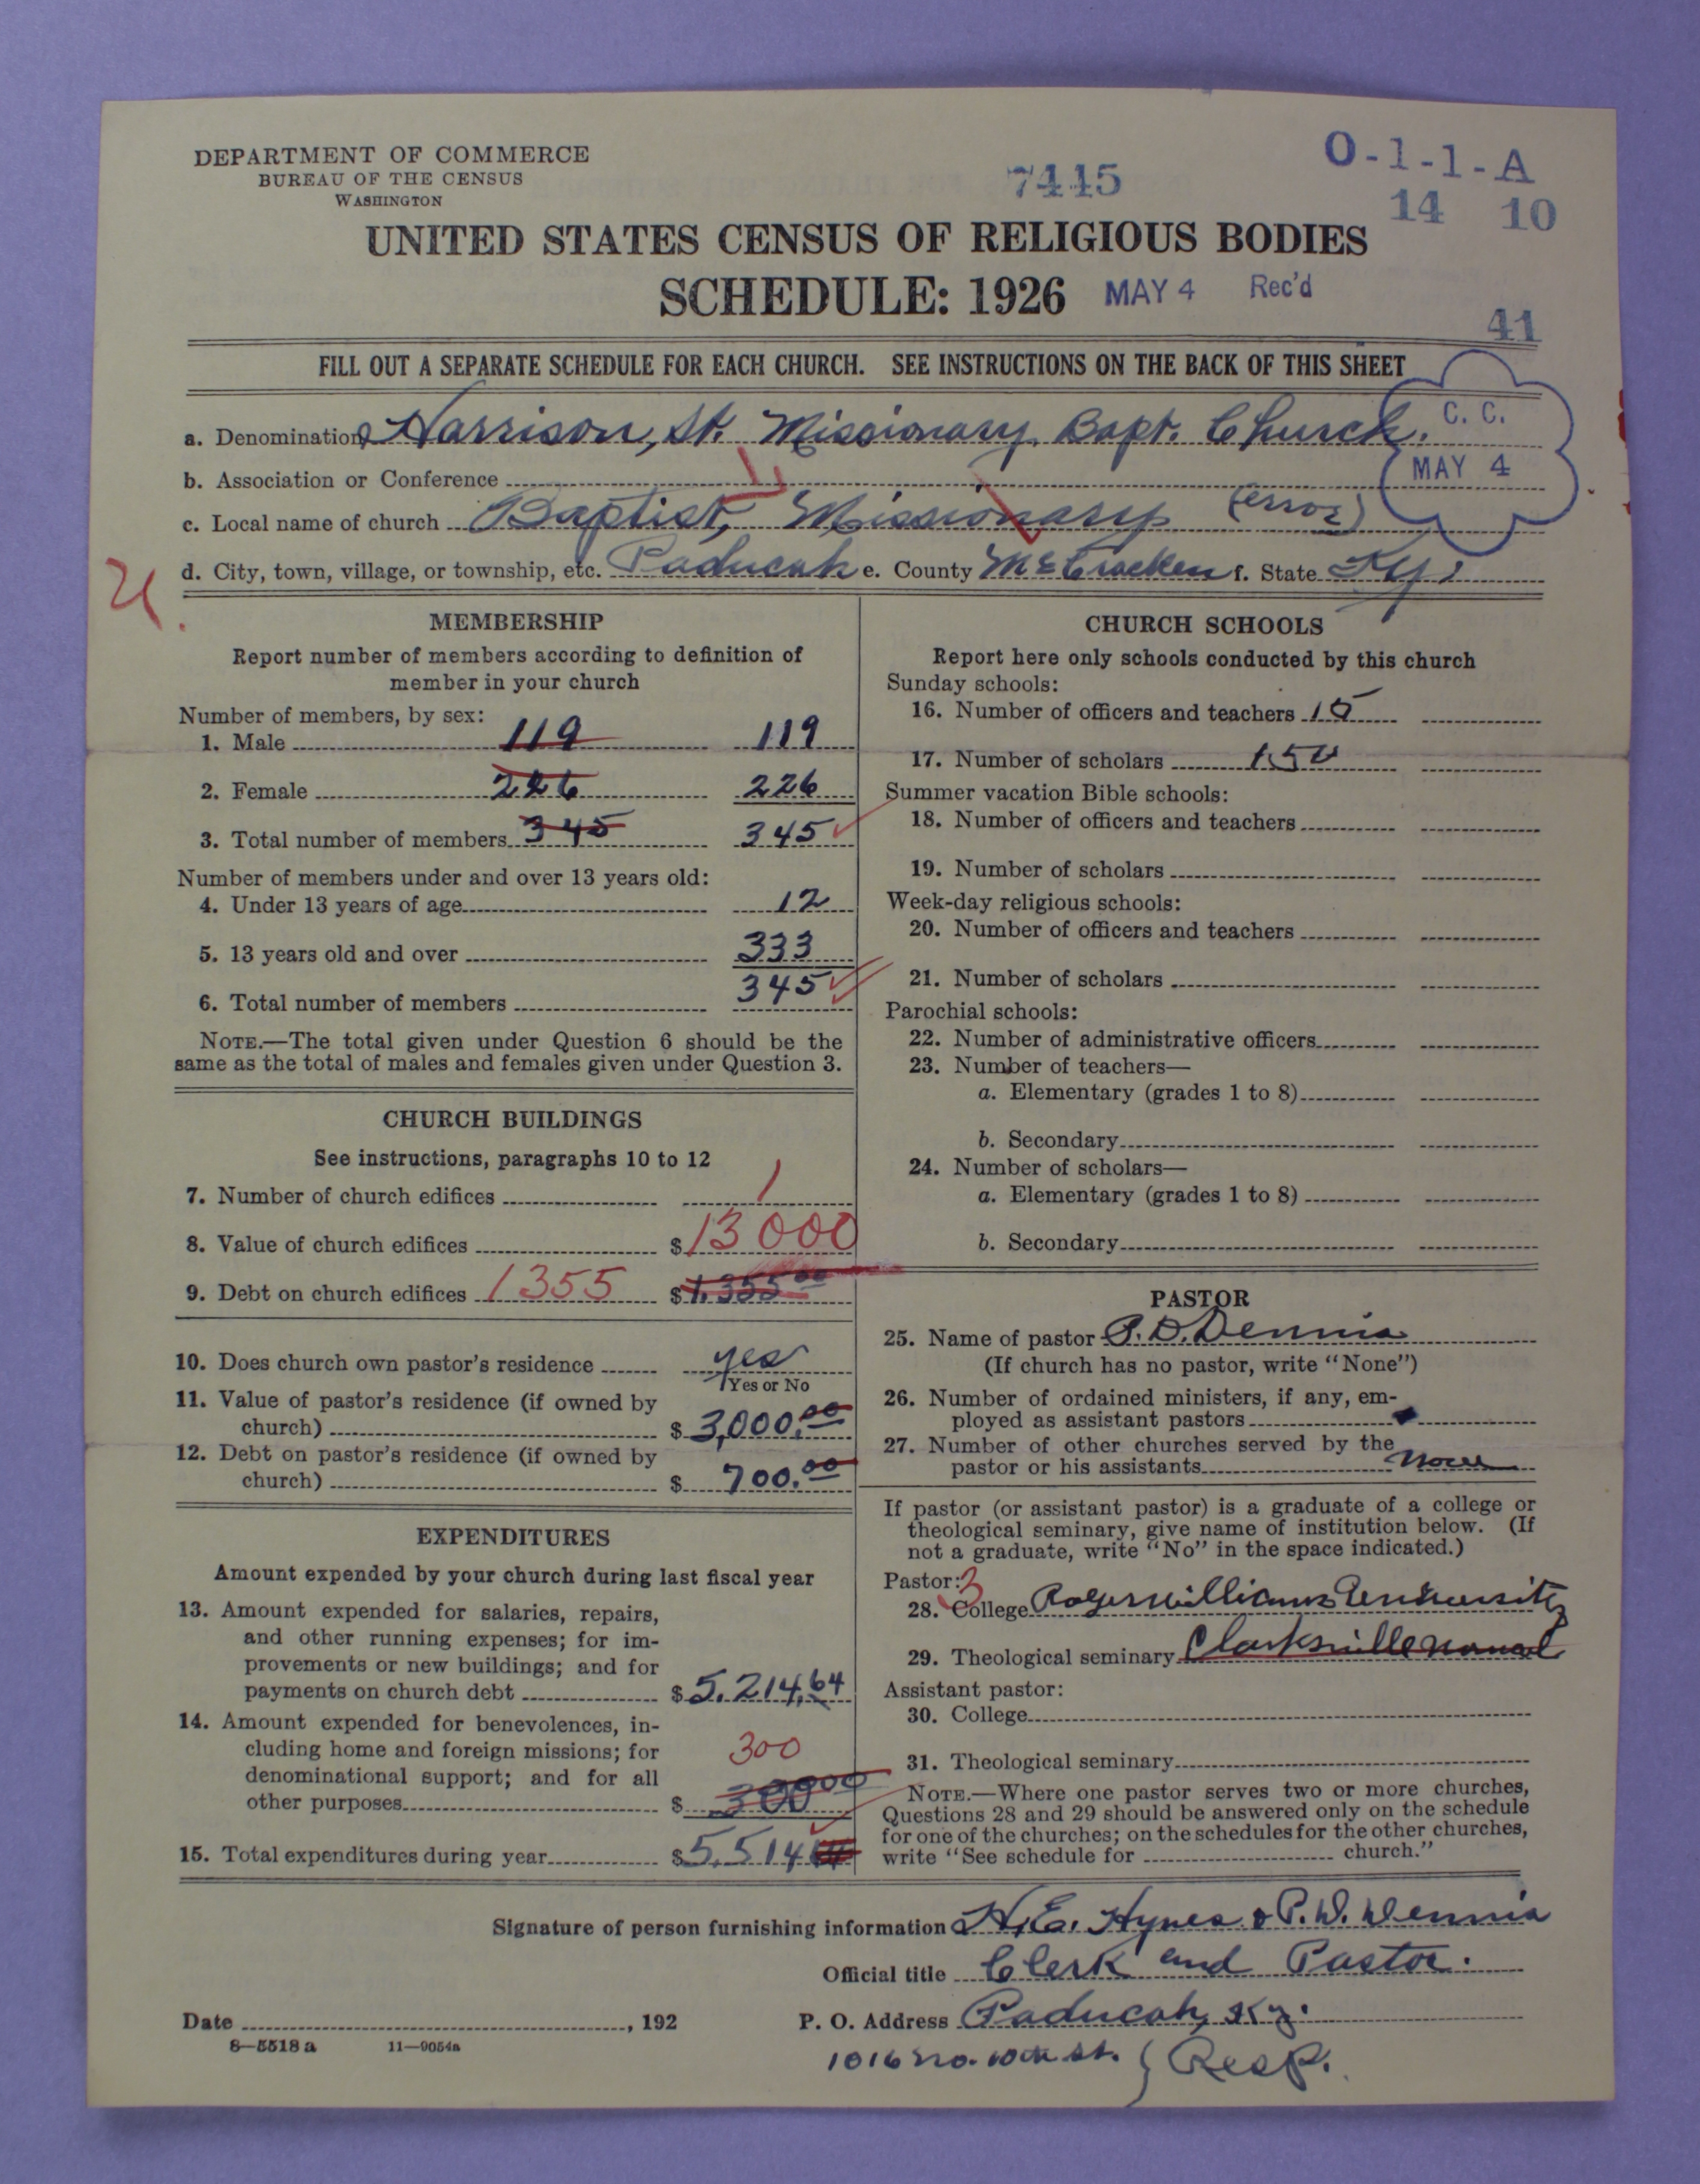 DEPARTMENT OF COMMERCE
BUREAU OF THE CENSUS
WASHINGTON
7445
O-1-1-A
14 10
UNITED STATES CENSUS OF RELIGIOUS BODIES
SCHEDULE: 1926 MAY 4 Rec'd
41
FILL OUT A SEPARATE SCHEDULE FOR EACH CHURCH. SEE INSTRUCTIONS ON THE BACK OF THIS SHEET
C. C.
MAY 4
a. Denomination Harrison, St. Missionary Bapt. Church.
b. Association or Conference
c. Local name of church Baptist, Missionary (error)
d. City, town, village, or township, etc. Paducah e. County McCracken f. State Ky.
MEMBERSHIP
Report number of members according to definition of
member in your church
Number of members, by sex:
1. Male 119 119
2. Female 226 226
3. Total number of members 345 345
Number of members under and over 13 years old:
4. Under 13 years of age 12
5. 13 years old and over 333
6. Total number of members 345
NOTE.—The total given under Question 6 should be the
same as the total of males and females given under Question 3.
CHURCH BUILDINGS
See instructions, paragraphs 10 to 12
7. Number of church edifices 1
8. Value of church edifices $ 13000
9. Debt on church edifices 1355 $ 1,355.00
10. Does church own pastor's residence yes
Yes or No
11. Value of pastor's residence (if owned by
church) $ 3,000.00
12. Debt on pastor's residence (if owned by
church) $ 700.00
EXPENDITURES
Amount expended by your church during last fiscal year
13. Amount expended for salaries, repairs,
and other running expenses; for im-
provements or new buildings; and for
payments on church debt $ 5,214.64
14. Amount expended for benevolences, in-
cluding home and foreign missions; for 300
denominational support; and for all
other purposes $ 300 00
15. Total expenditures during year $ 5,514
CHURCH SCHOOLS
Report here only schools conducted by this church
Sunday schools:
16. Number of officers and teachers 15
17. Number of scholars 150
Summer vacation Bible schools:
18. Number of officers and teachers
19. Number of scholars
Week-day religious schools:
20. Number of officers and teachers
21. Number of scholars
Parochial schools:
22. Number of administrative officers
23. Number of teachers—
a. Elementary (grades 1 to 8)
b. Secondary
24. Number of scholars—
a. Elementary (grades 1 to 8)
b. Secondary
PASTOR
25. Name of pastor P. D. Dennis
(If church has no pastor, write "None")
26. Number of ordained ministers, if any, em-
ployed as assistant pastors
27. Number of other churches served by the
pastor or his assistants None
If pastor (or assistant pastor) is a graduate of a college or
theological seminary, give name of institution below. (If
not a graduate, write "No" in the space indicated.)
Pastor: 3
28. College Roger Williams University
29. Theological seminary Clarksville Normal
Assistant pastor:
30. College
31. Theological seminary
NOTE.—Where one pastor serves two or more churches,
Questions 28 and 29 should be answered only on the schedule
for one of the churches; on the schedules for the other churches,
write "See schedule for church."
Signature of person furnishing information H. E. Hynes & P. D. Dennis
Official title Clerk and Pastor.
Date , 192
P. O. Address Paducah, Ky.
8—5518 a 11—9054a
1016 No. 10th St. } Resp.